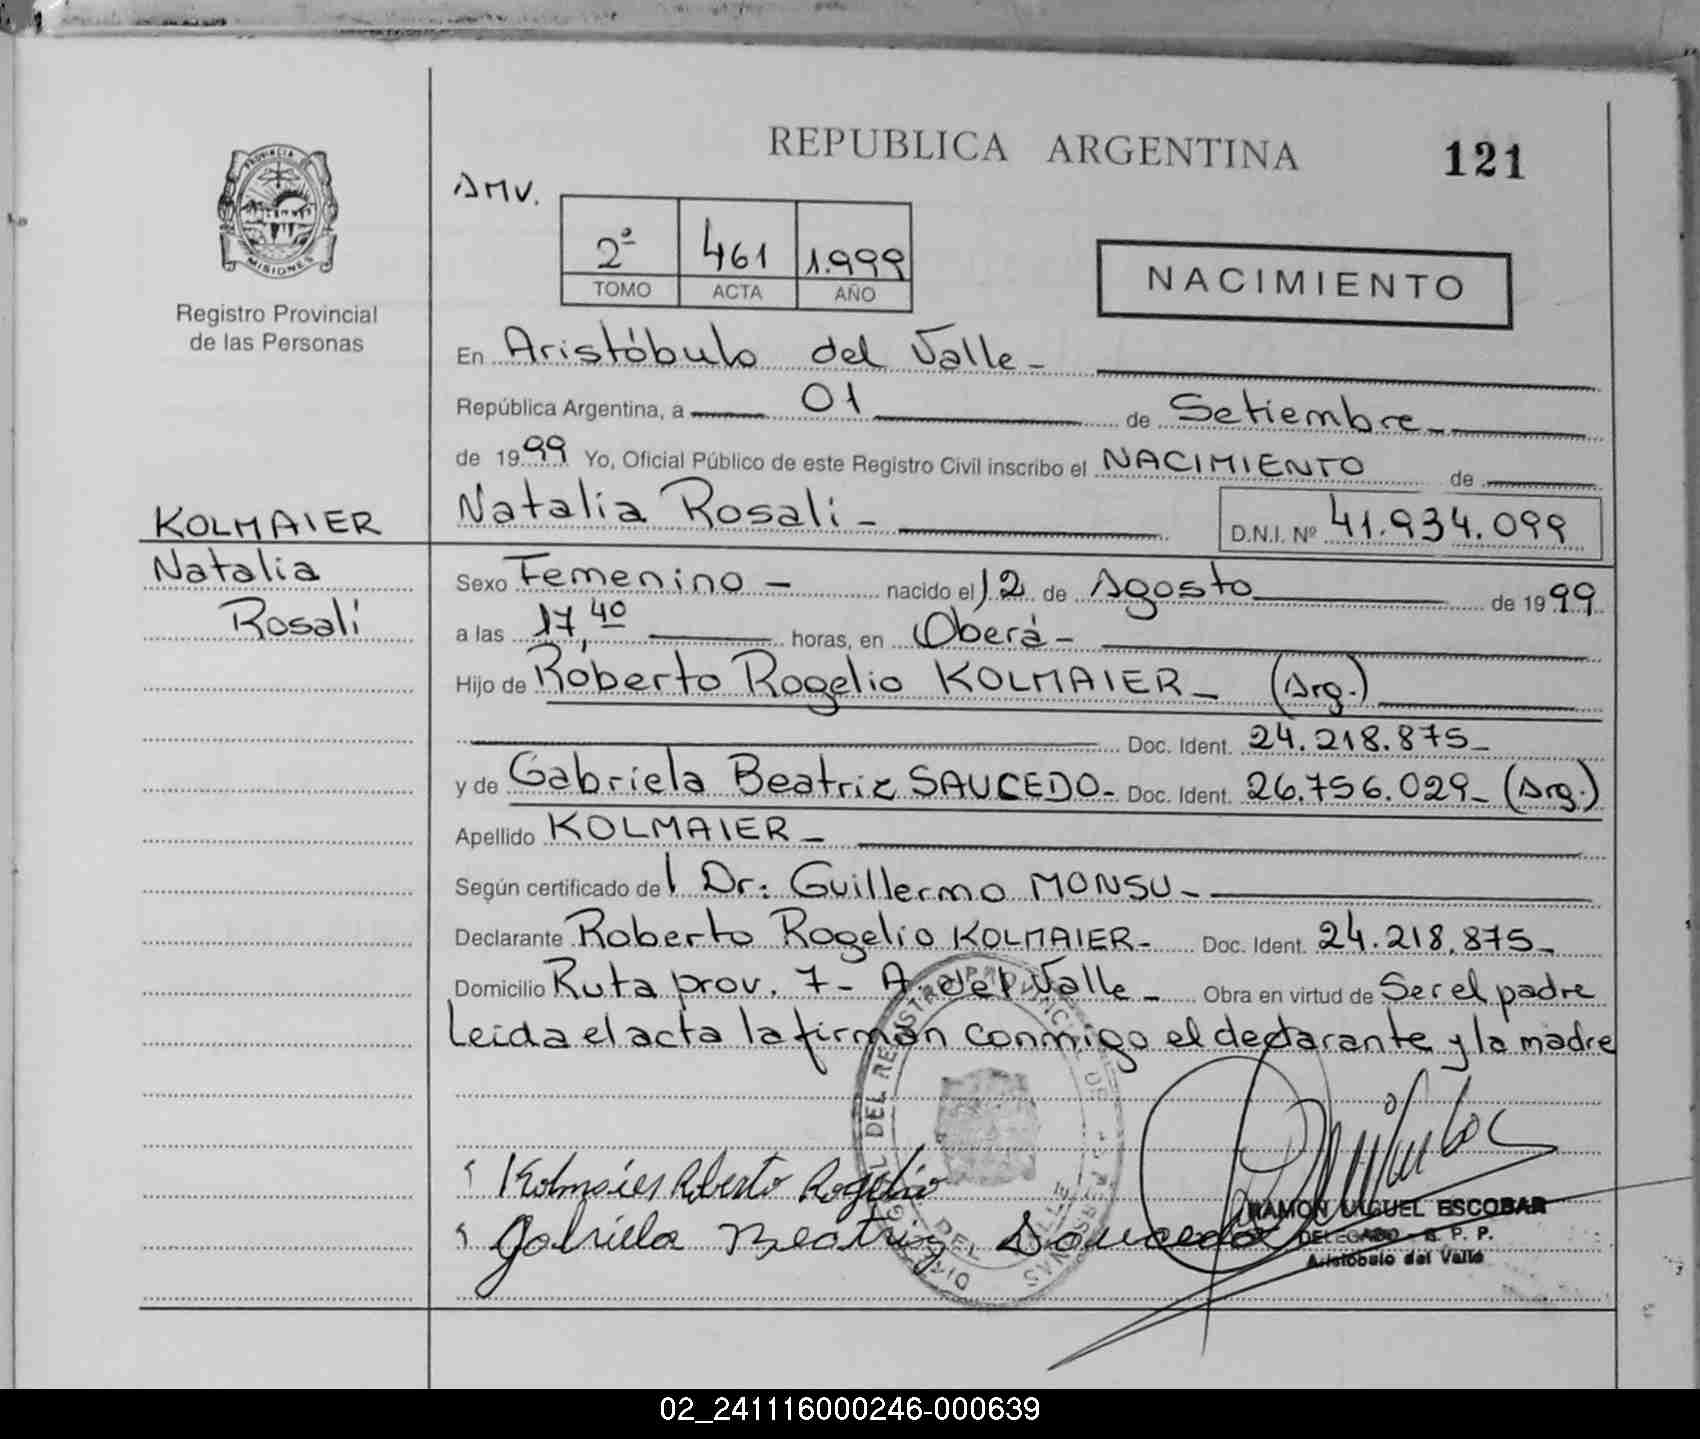 REPUBLICA ARGENTINA 121
PROVINCIA DE
MISIONES
Registro Provincial
de las Personas
AMV.
2º 461 1.999
TOMO ACTA AÑO
NACIMIENTO
En Aristóbulo del Valle -
República Argentina, a 01 de Setiembre
de 1999 Yo, Oficial Público de este Registro Civil inscribo el NACIMIENTO de
Natalia Rosali - D.N.I. Nº 41.934.099
KOLMAIER
Natalia
Rosali
Sexo Femenino - nacido el 12 de Agosto de 1999
a las 17,40 horas, en Oberá -
Hijo de Roberto Rogelio KOLMAIER - (Arg.)
Doc. Ident. 24.218.875 -
y de Gabriela Beatriz SAUCEDO - Doc. Ident. 26.756.029 - (Arg.)
Apellido KOLMAIER -
Según certificado del Dr: Guillermo MONSU -
Declarante Roberto Rogelio KOLMAIER - Doc. Ident. 24.218.875 -
Domicilio Ruta prov. 7 - A. del Valle - Obra en virtud de Ser el padre
Leida el acta la firman conmigo el declarante y la madre
Kolmaier Roberto Rogelio
Gabriela Beatriz Saucedo
RAMON MIGUEL ESCOBAR
DELEGADO - R. P. P.
Aristobulo del Valle
02_241116000246-000639